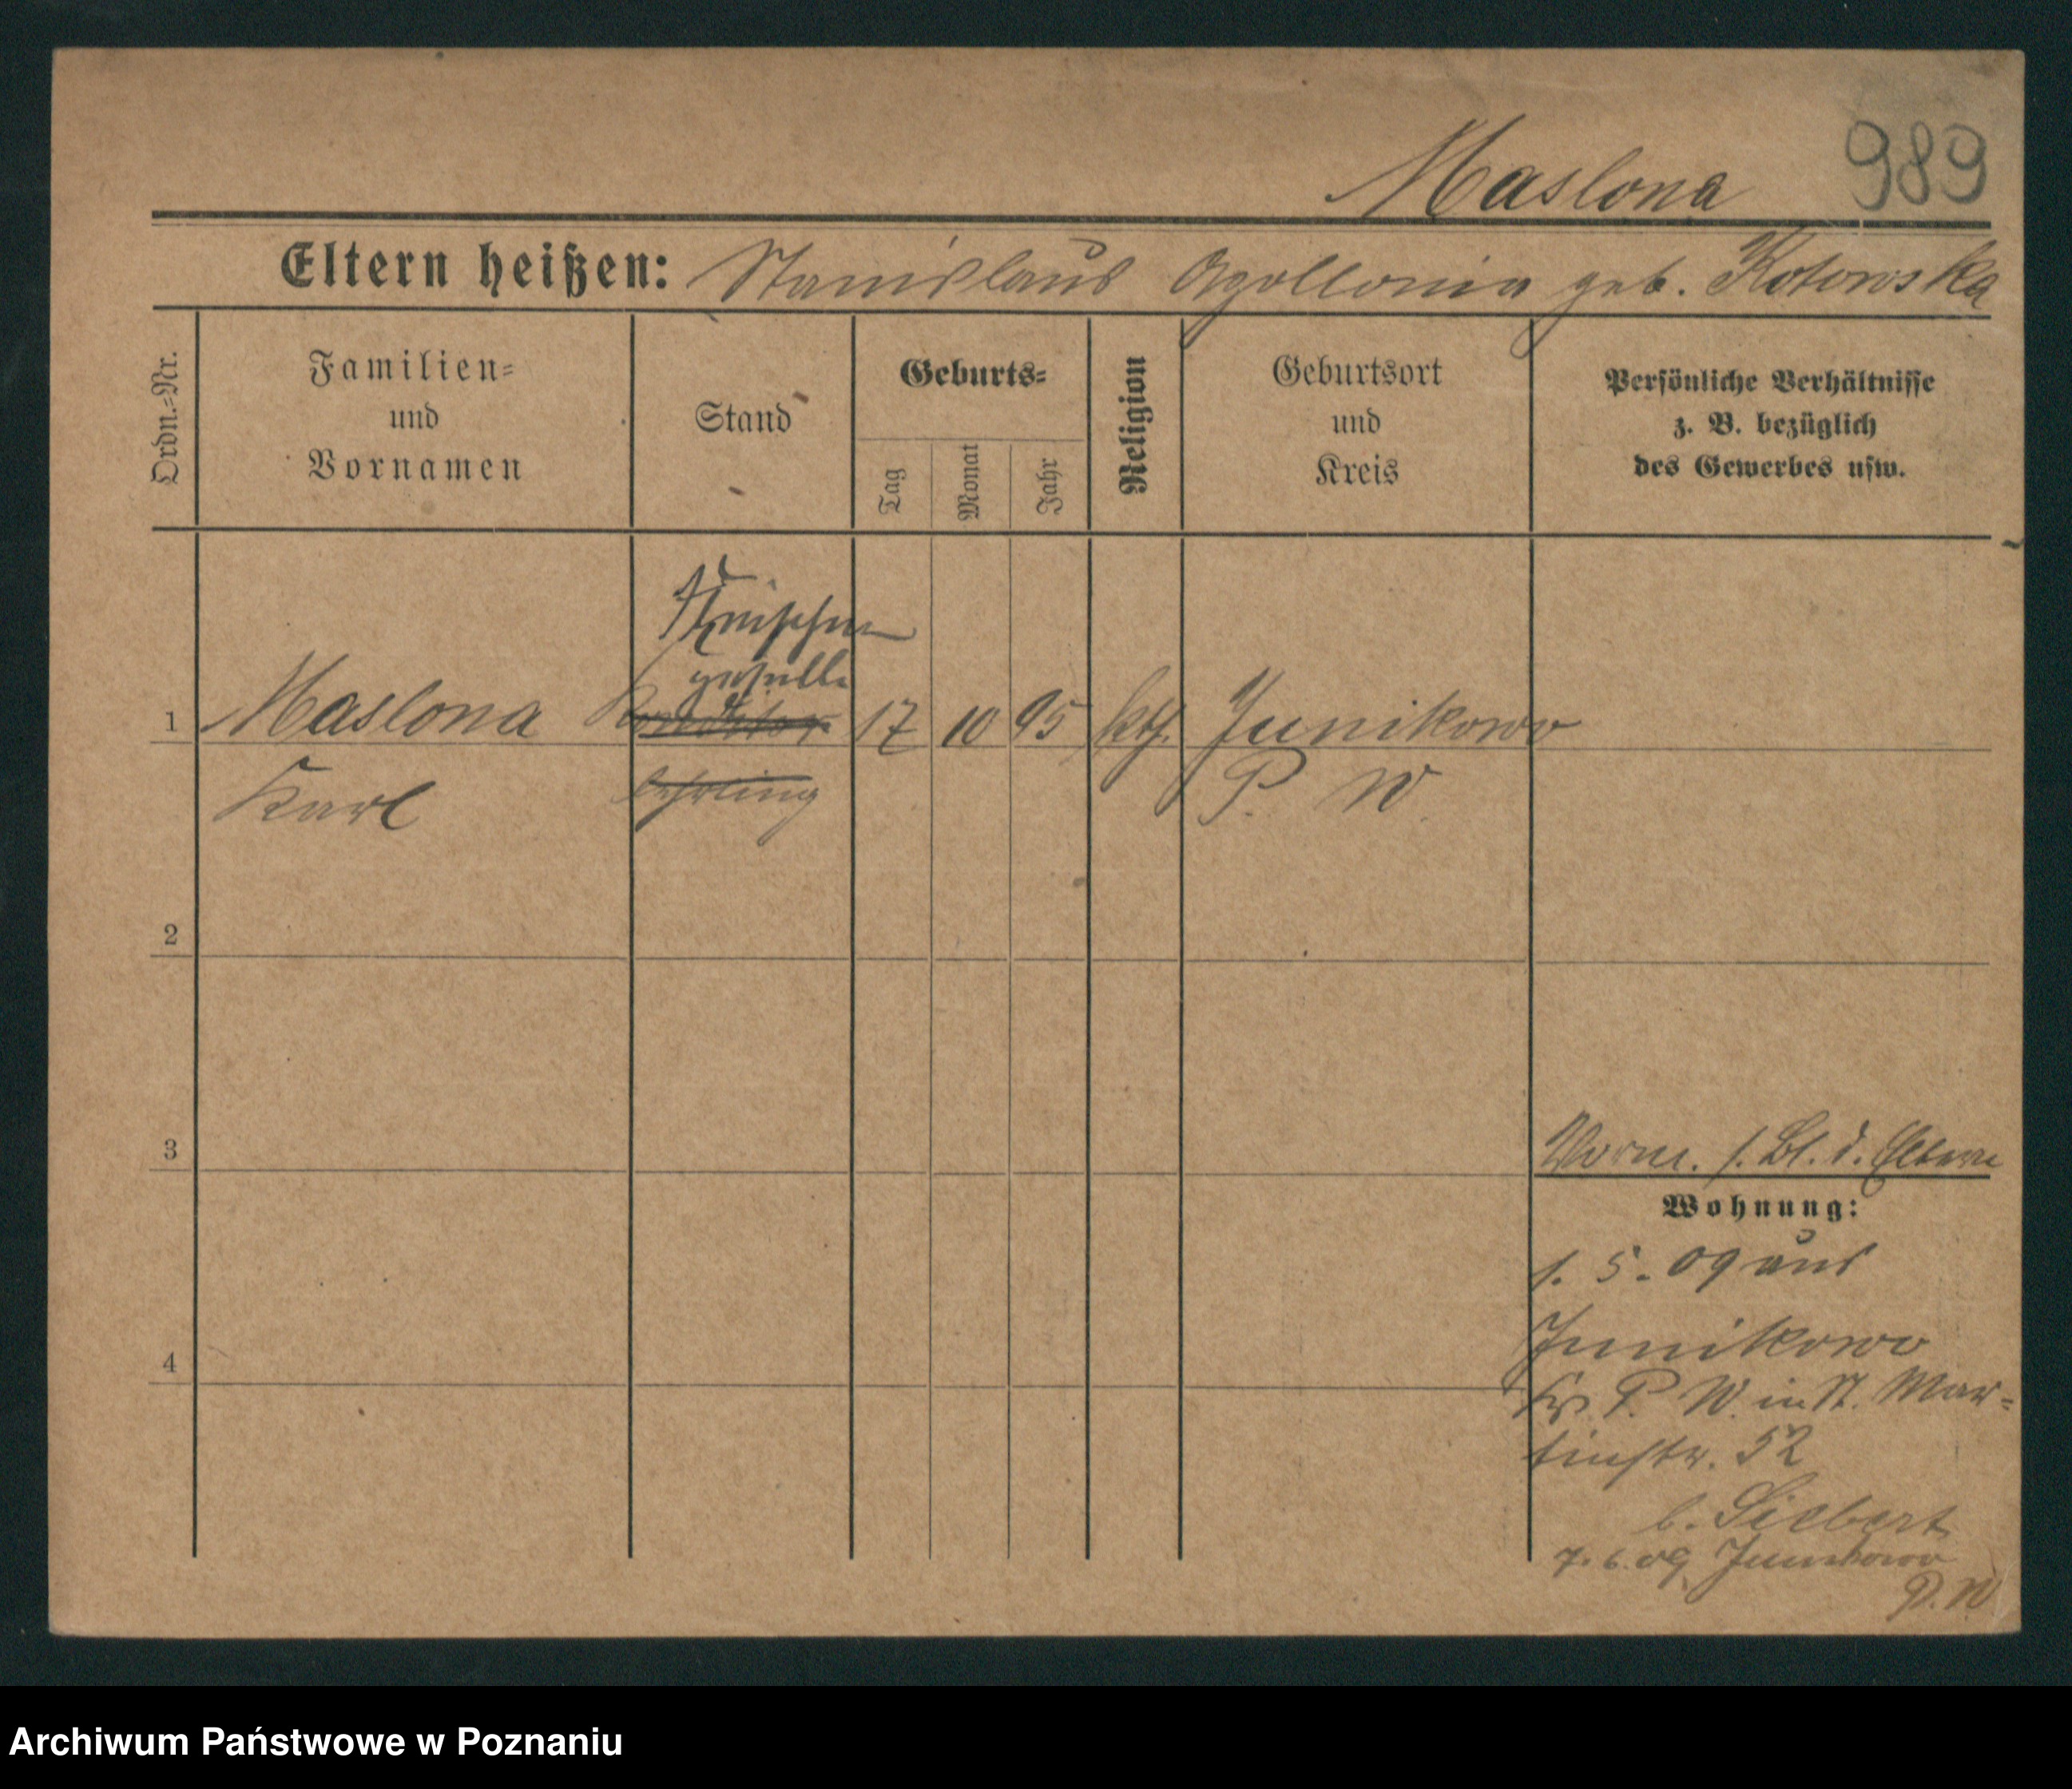 Maslona 989
Eltern heißen: Stanislaus Apollonia geb. Kotowska
Ordn.=Nr.
Familien=
und
Vornamen
Stand
Geburts=
Tag
Monat
Jahr
Religion
Geburtsort
und
Kreis
Persönliche Verhältnisse
z. B. bezüglich
des Gewerbes usw.
geselle
1 Maslona Konditor 17 10 95 kth. Junikowo
Karl lehrling P. W.
2
3
Vorm. s. Bl. d. Eltern
Wohnung:
1. 5. 09 aus
Junikowo
4
Kr. P. W. in St. Mar=
tinstr. 52
b. Siebert
7. 6. 09 Junikowo
P. W
Archiwum Państwowe w Poznaniu